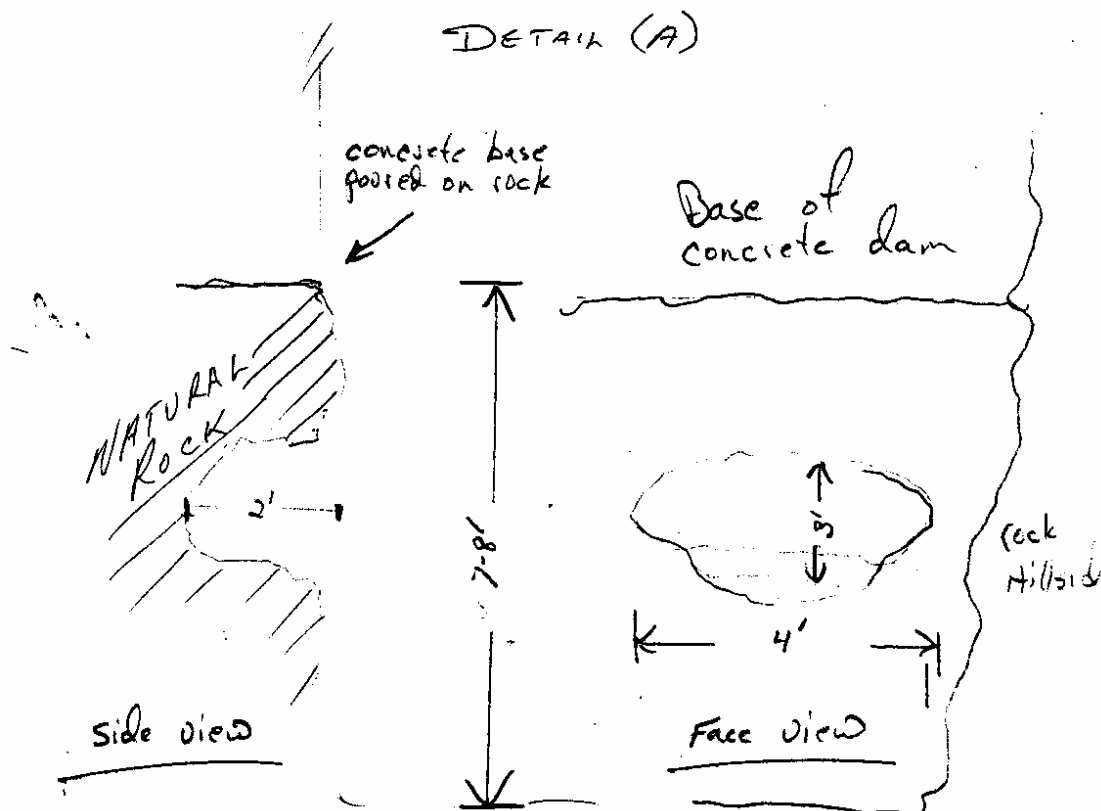 DETAIL (A)
concrete base
poured on rock
Base of
concrete dam
NATURAL
ROCK
2'
7-8'
3'
4'
rock
Hillside
Side view
Face view